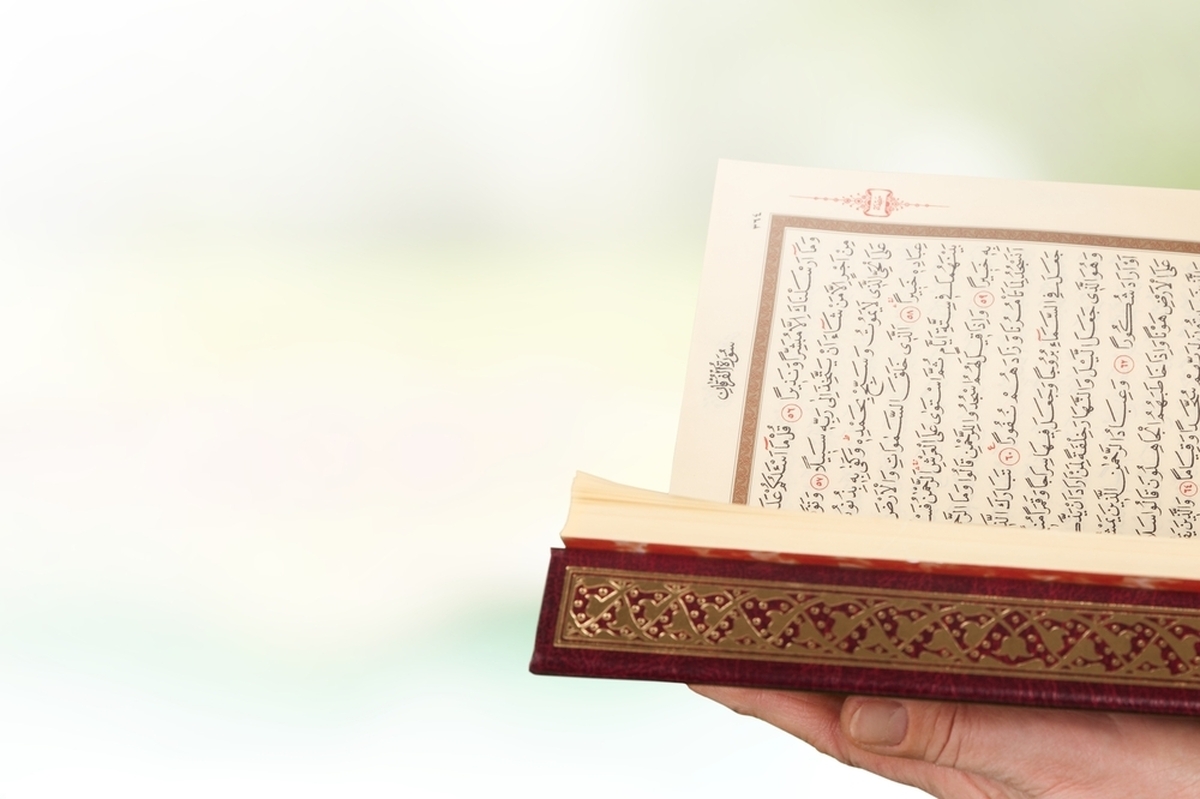 ٣٦٤
سُورَةُ الْفُرْقَانِ
وَمَٓا اَرْسَلْنَاكَ اِلَّا مُبَشِّرًا وَنَذِيرًا ٥٦ قُلْ مَٓا اَسْـَٔلُكُمْ
مِنْ اَجْرٍ اِلَّا مَنْ شَٓاءَ اَنْ يَتَّخِذَ اِلٰى رَبِّهِ سَبِيلًا ٥٧
عَلَى الْحَيِّ الَّذِي لَا يَمُوتُ وَسَبِّحْ بِحَمْدِهِ وَكَفٰى بِهِ
عِبَادِهِ خَبِيرًا ٥٨ اَلَّذِي خَلَقَ السَّمٰوَاتِ وَالْاَرْضَ
بَيْنَهُمَا فِي سِتَّةِ اَيَّامٍ ثُمَّ اسْتَوٰى عَلَى الْعَرْشِ اَلرَّحْمٰنُ
بِهِ خَبِيرًا ٥٩ وَاِذَا قِيلَ لَهُمُ اسْجُدُوا لِلرَّحْمٰنِ قَالُوا وَمَا
اَنَسْجُدُ لِمَا تَأْمُرُنَا وَزَادَهُمْ نُفُورًا ٦٠ تَبَارَكَ
جَعَلَ فِي السَّمَٓاءِ بُرُوجًا وَجَعَلَ فِيهَا سِرَاجًا وَقَمَرًا
وَهُوَ الَّذِي جَعَلَ الَّيْلَ وَالنَّهَارَ خِلْفَةً لِمَنْ اَرَادَ اَنْ
اَوْ اَرَادَ شُكُورًا ٦٢ وَعِبَادُ الرَّحْمٰنِ الَّذِينَ
عَلَى الْاَرْضِ هَوْنًا وَاِذَا خَاطَبَهُمُ الْجَاهِلُونَ قَالُوا
سُجَّدًا وَقِيَامًا ٦٤ وَالَّذِينَ